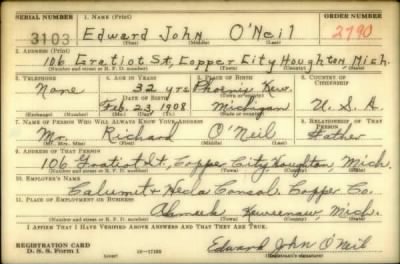 SERIAL NUMBER 1. NAME (Print) ORDER NUMBER
3103 Edward John O'Neil 2790
(First) (Middle) (Last)
2. ADDRESS (Print)
106 Gratiot St, Copper City Houghton Mich.
(Number and street or R. F. D. number) (Town) (County) (State)
3. TELEPHONE 4. AGE IN YEARS 5. PLACE OF BIRTH 6. COUNTRY OF CITIZENSHIP
None 32 yrs Phoenix Kew. U. S. A.
DATE OF BIRTH (Town or county)
Feb. 23, 1908 Michigan
(Exchange) (Number) (Mo.) (Day) (Yr.) (State or country)
7. NAME OF PERSON WHO WILL ALWAYS KNOW YOUR ADDRESS 8. RELATIONSHIP OF THAT PERSON
Mr. Richard O'Neil Father
(Mr., Mrs., Miss) (First) (Middle) (Last)
9. ADDRESS OF THAT PERSON
106 Gratiot St, Copper City Houghton, Mich.
(Number and street or R. F. D. number) (Town) (County) (State)
10. EMPLOYER'S NAME
Calumet-Hecla Consol. Copper Co.
11. PLACE OF EMPLOYMENT OR BUSINESS
Ahmeek Keweenaw, Mich.
(Number and street or R. F. D. number) (Town) (County) (State)
I AFFIRM THAT I HAVE VERIFIED ABOVE ANSWERS AND THAT THEY ARE TRUE.
REGISTRATION CARD
D. S. S. Form 1 16-17105 Edward John O'Neil
(Registrant's signature)